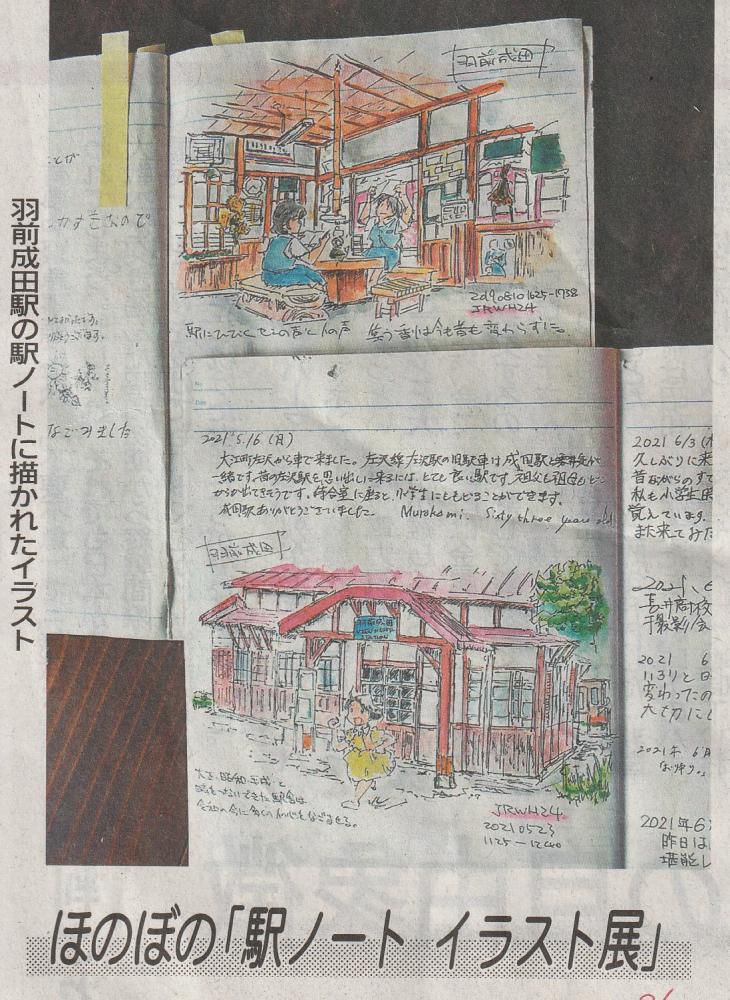 羽前成田駅の駅ノートに描かれたイラスト
羽前成田
20190810 1625-1738
JRWH24
駅にひびくせみの声と人の声 笑う香りは今も昔も変わらずに。
ことが
なごみました
No.
Date
2021 5.16 (日)
大江町左沢から車で来ました。左沢線左沢駅の旧駅車は成田駅と
一緒です。昔の左沢駅を思い出し 来るには、とても良い駅です。祖父も祖母も
からか出てきそうです。待合室に座ると、小学生にもどることができます。
成田駅ありがとうございました Murakami. Sixty three years old
羽前成田
羽前成田
STATION
大正 昭和 平成と
令和の今に多くの人の心をなごませる。
JRWH24
20210523
1125-1240
2021 6/3
久しぶりに来
昔ながらのすて
私も小学生
覚えています。
また来てみた
2021. 6
長井高校
撮影会
2021 6
いろりと
変わったの
大切にし
2021年 6月
2021年6
昨日は
堪能し
ほのぼの「駅ノート イラスト展」